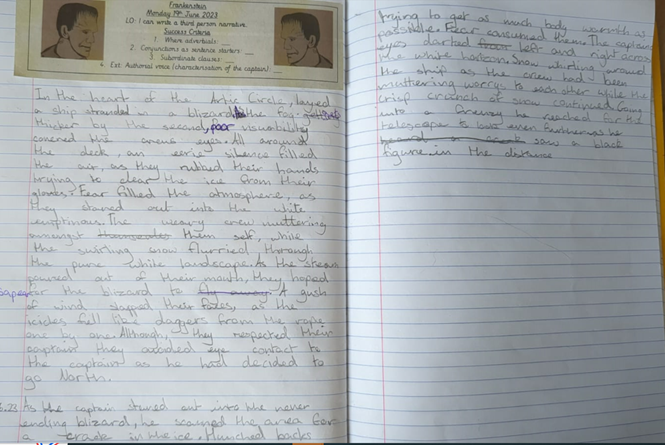 Frankenstein
Monday 19th June 2023
LO: I can write a third person narrative.
Success Criteria
1. Where adverbials:
2. Conjunctions as sentence starters:
3. Subordinate clauses:
4. Ext: Authorial voice (characterisation of the captain)
In the heart of the Artic Circle, layed
a ship stranded in a blizzard, the fog
thicker by the second, poor visability
covered the crews eyes. All around
the deck, an eerie silence filled
the air, as they rubbed their hands
trying to clear the ice from their
gloves. Fear filled the atmosphere, as
they stared out into the white
emptiness. The weary crew muttering
amongst them self, while
the swirling snow flurried through
the pure white landscape. As the steam
poured out of their mouth, they hoped
for the blizzard to A gush
of wind slapped their faces, as the
icicles fell like daggers from the rope
one by one. Although, they respected their
captain they avoided eye contact to
the captain as he had decided to
go North.
As the captain stared out into the never
ending blizzard, he scanned the area for
a crack in the ice. Hunched backs
trying to get as much body warmth as
possible. Fear consumed them. The captains
eyes darted left and right across
the white horizon. Snow whirling around
the ship as the crew had been
muttering worrys to each other while the
crisp crunch of snow continued. Going
into a frenzy he reached for the
telescope to look even further as he
saw a black
figure in the distance